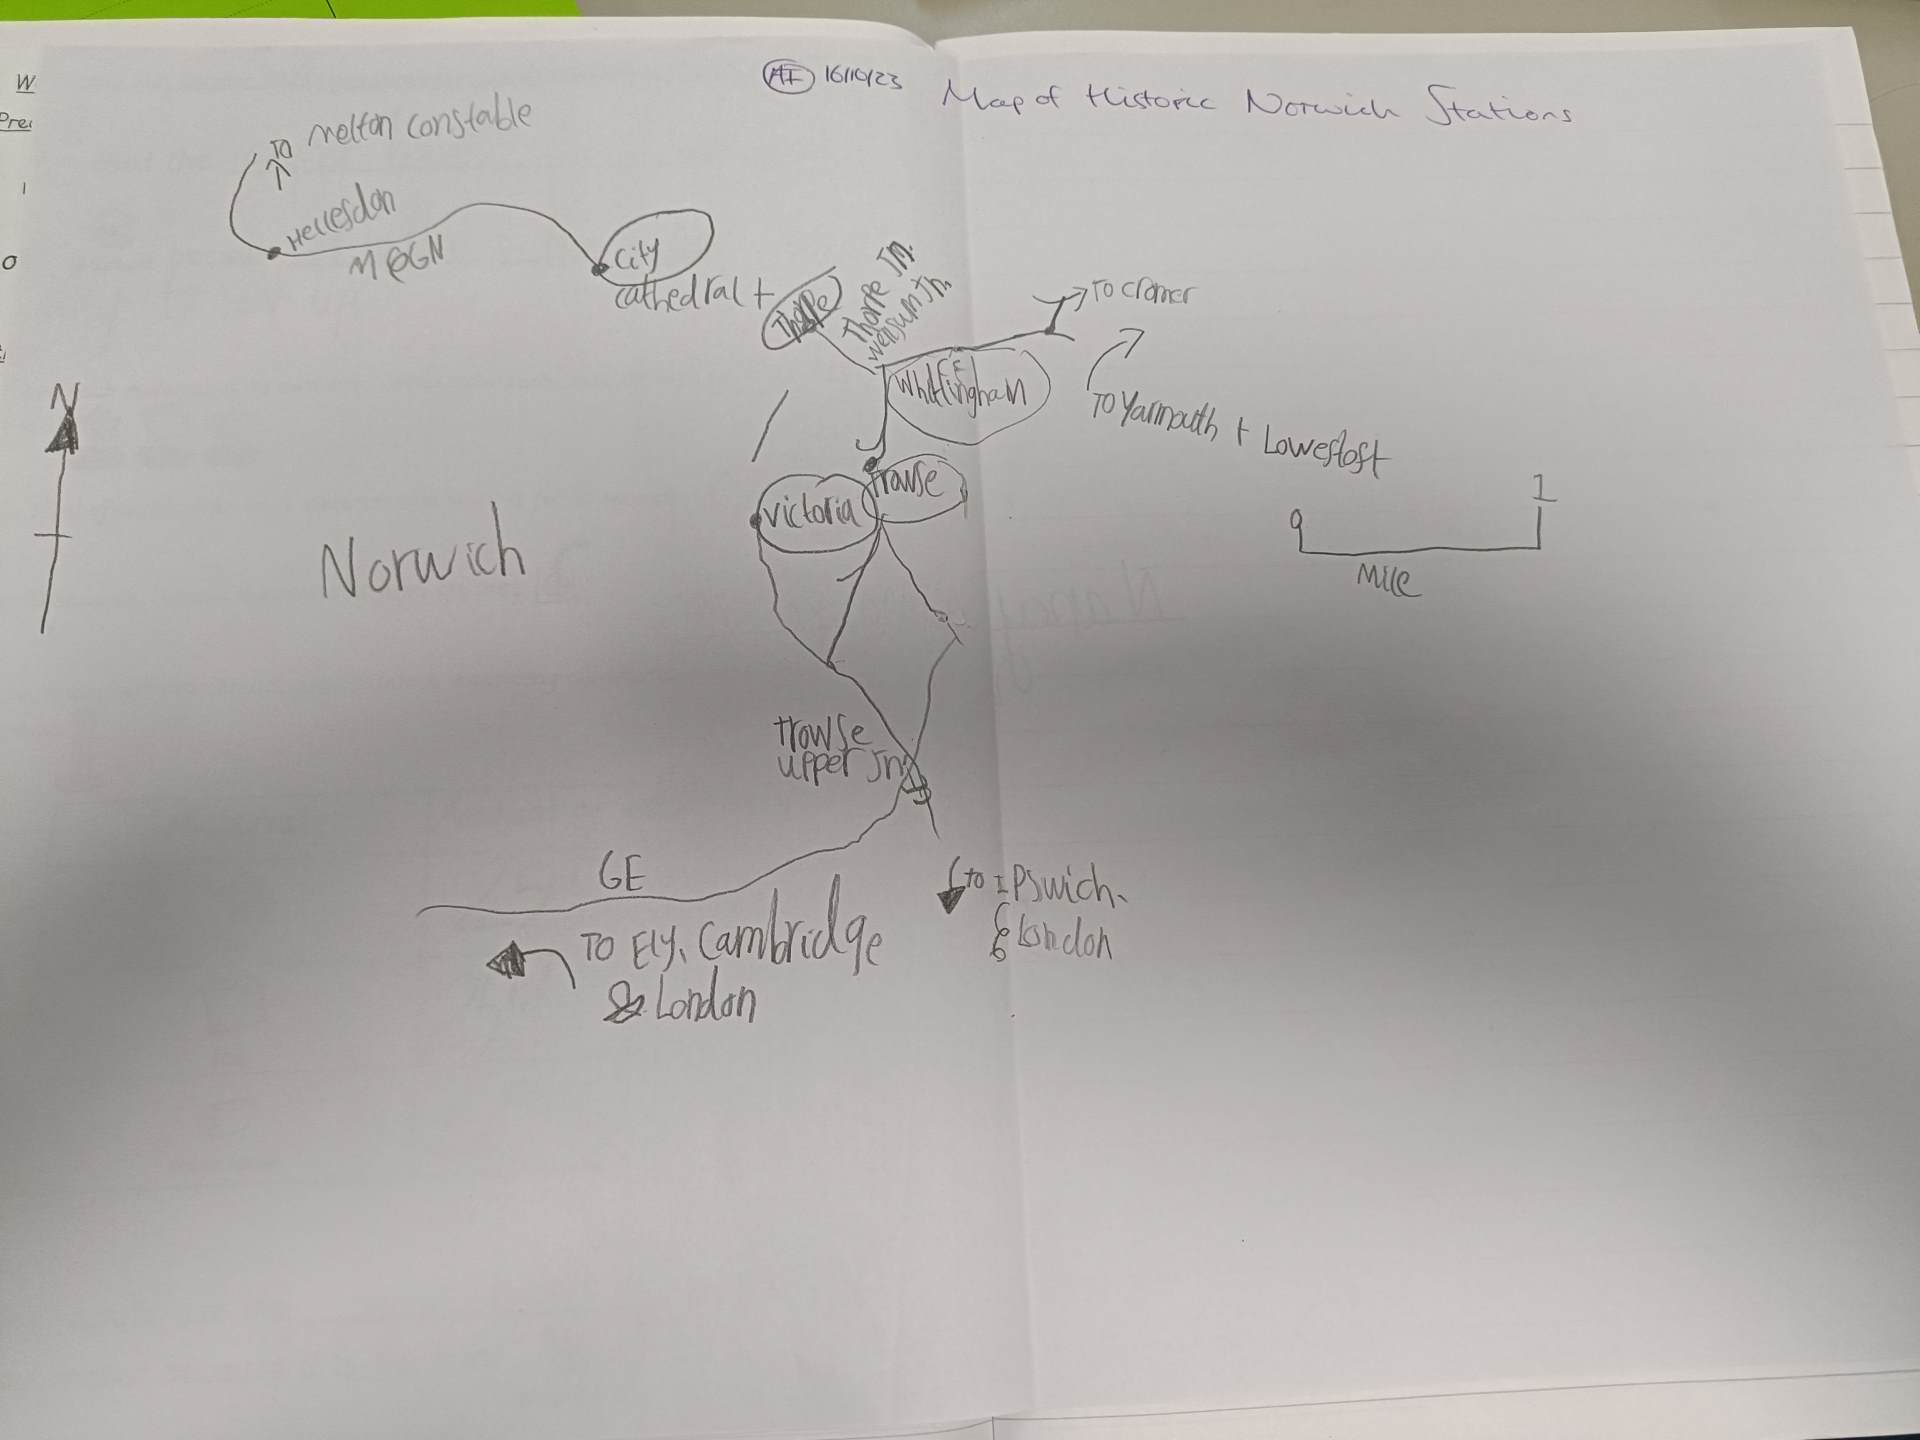 W
16/10/23 Map of Historic Norwich Stations
Pre
To Melton Constable
Hellesdon
M&GN
City
Cathedral +
Thorpe
Thorpe Jn.
Wensum Jn.
To Cromer
GE
Whitlingham
To Yarmouth + Lowestoft
N
Trowse
Victoria
0
1
Mile
Norwich
Trowse
upper Jn
GE
to Ipswich.
& London
To Ely, Cambridge
& London